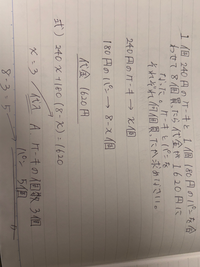 1個240円のケーキと1個180円のパンを合
わせて8個買ったら代金が1620円に
なった。ケーキとパンを
それぞれ何個買ったか求めなさい。
240円のケーキ→x個
180円のパン→8-x個
代金 1620円
式) 240x+180(8-x)=1620
x=3 代入 ケーキの個数 3個
パン 5個
8-3=5